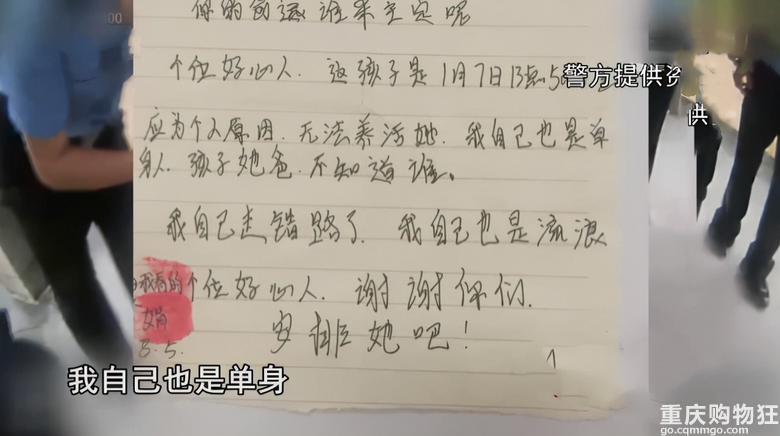 谁来主
个位好心人. 这孩子是1月7日13点5
警方提供
供
应为个人原因. 无法养活她. 我自己也是单
身人. 孩子她爸. 不知道谁。
我自己走错路了. 我自己也是流浪
我看的个位好心人. 谢谢你们.
安排她吧!
8.5.
1
我自己也是单身
重庆购物狂
go.cqmmgo.com